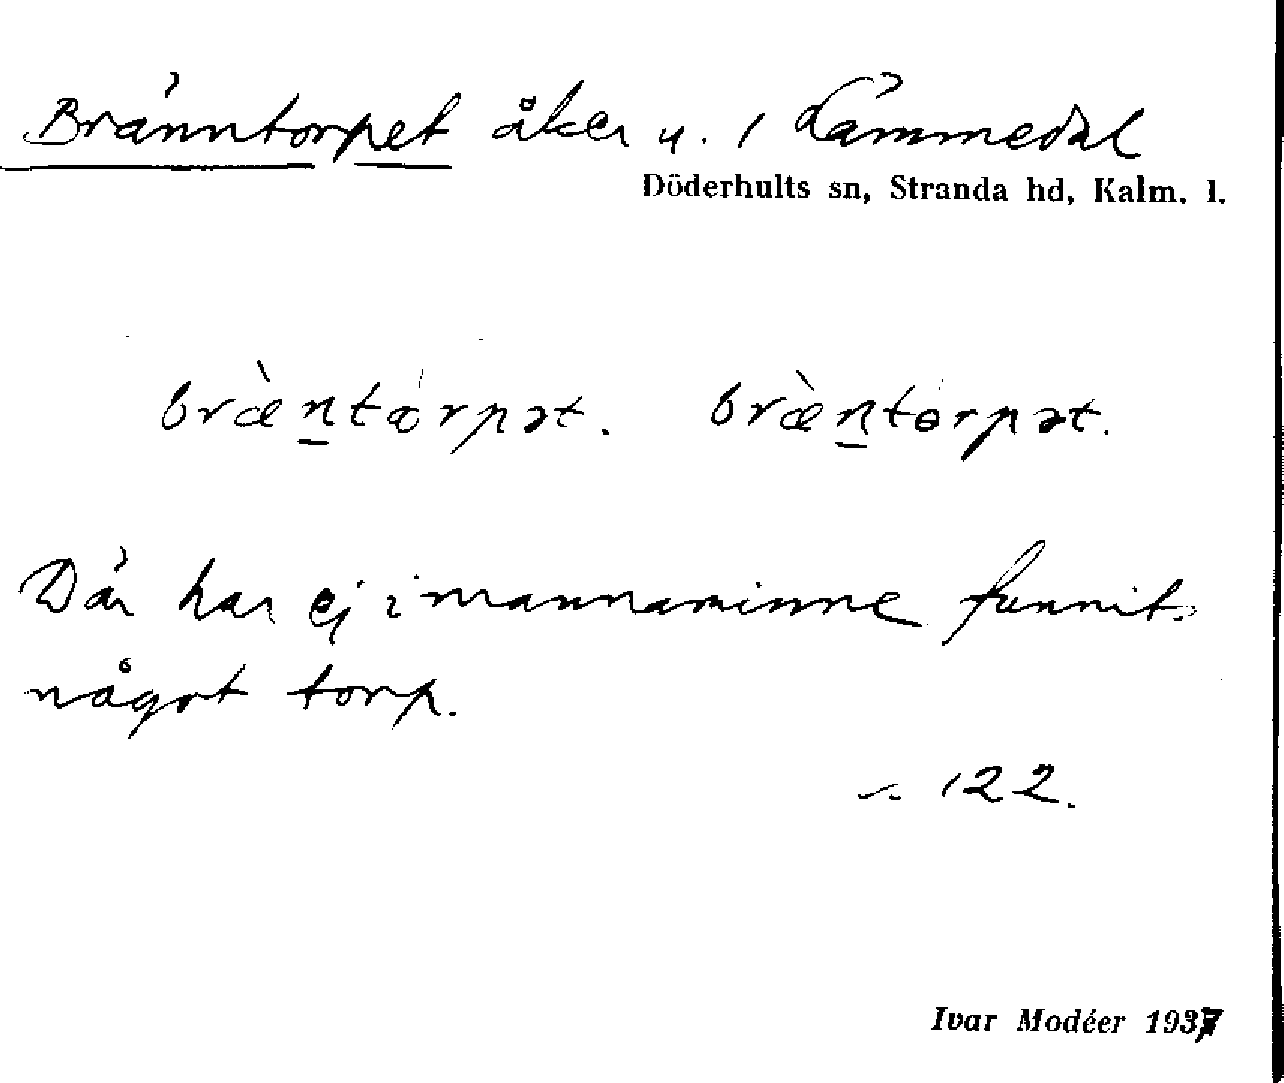 Bränntorpet åker u. 1 Lämmedal
Döderhults sn, Stranda hd, Kalm. l.
bræ̀ntərpət. bræ̀ntɵrpət.
Där har ej i mannaminne funnits
något torp.
122.
Ivar Modéer 1937